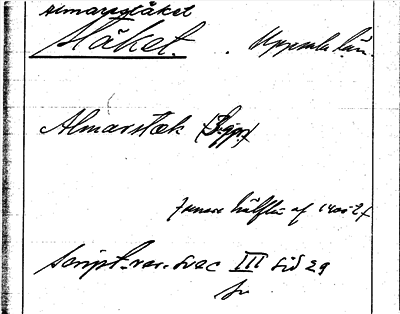 Almarestäket
Stäket. . Uppsala län.
Almarstæk (3.ggr.)
senare hälften af 1400 t.
Script. rer. svec III sid 29